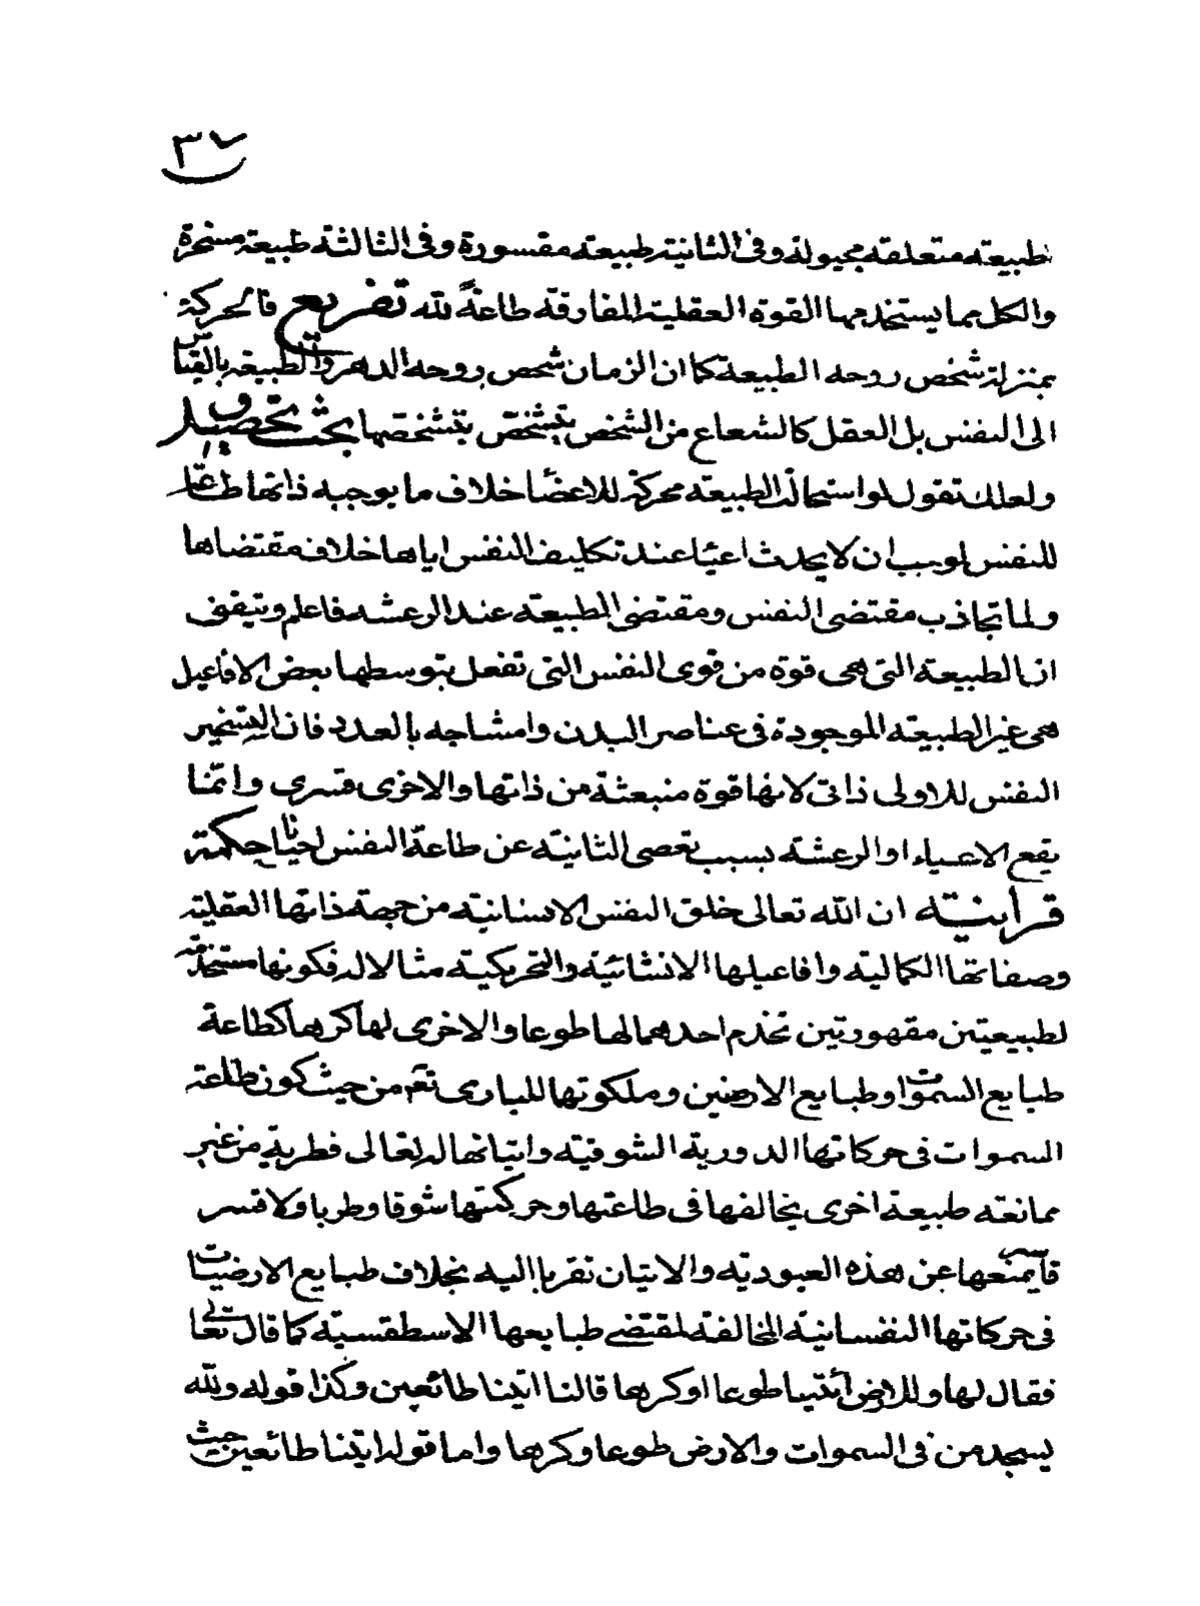 ٣٧
طبيعته متعلقه مجبولة وفى الثانية طبيعته مقسورة وفى الثالثة طبيعته مسخرة
والكل مما يستخدمها القوة العقلية المفارقة طاعةً لله تفريع فالحركة
بمنزلة شخص روحه الطبيعة كما ان الزمان شخص روحه الدهر والطبيعة بالقياس
الى النفس بل العقل كالشعاع من الشخص يتشخص بتشخصها بحث وتحصيل
ولعلك تقول لو استحالت الطبيعة محركة للاعضا خلاف ما يوجبه ذاتها طاعة
للنفس لوجب ان لا يحدث اعيا عند تكليف النفس اياها خلاف مقتضاها
ولما تجاذب مقتضى النفس ومقتضى الطبيعة عند الرعشه فاعلم وتيقن
ان الطبيعة التى هى قوة من قوى النفس التى تفعل بتوسطها بعض الافاعيل
هى غير الطبيعة الموجودة فى عناصر البدن وامشاجه بالعدد فان تسخير
النفس للاولى ذاتى لانها قوة منبعثة من ذاتها والاخرى قسرى وانما
يقع الاعياء او الرعشة بسبب تعصى الثانية عن طاعة النفس احيانا حكمة
قرآنية ان الله تعالى خلق النفس الانسانية من جهة ذاتها العقلية
وصفاتها الكمالية وافاعيلها الانشائية والتحريكية مثالا له فكونها مستخدمة
لطبيعتين مقهورتين تخدم احدهما لها طوعا والاخرى لها كرها كطاعة
طبايع السموات وطبايع الارضين وملكوتها للبارى تعم من حيث كون طاعة
السموات فى حركاتها الدورية الشوقية واتيانها له تعالى فطرية من غير
ممانعة طبيعة اخرى يخالفها فى طاعتها وحركتها شوقا وطربا ولا قسر
قاسر يمنعها عن هذه العبودية والاتيان تقربا اليه بخلاف طبايع الارضيات
فى حركاتها النفسانية المخالفة لمقتضى طبايعها الاسطقسية كما قال تعالى
فقال لها وللارض أئتيا طوعا او كرها قالتا اتينا طائعين وكذا قوله ولله
يسجد من فى السموات والارض طوعا وكرها واما قوله اتينا طائعين حيث